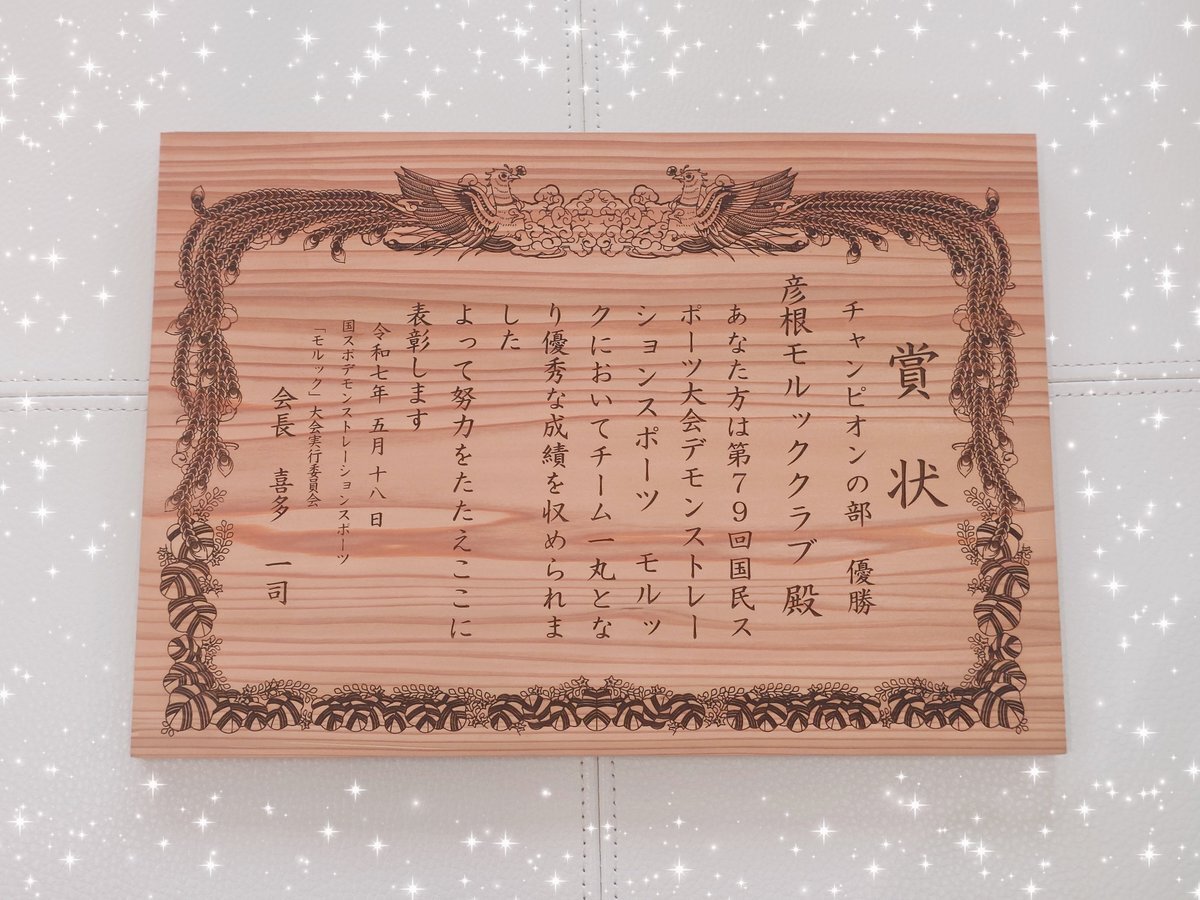 賞状
チャンピオンの部 優勝
彦根モルッククラブ 殿
あなた方は第79回国民ス
ポーツ大会デモンストレー
ションスポーツ モルッ
クにおいてチーム一丸とな
り優秀な成績を収められま
した
よって努力をたたえここに
表彰します
令和七年 五月 十八 日
国スポデモンストレーションスポーツ
「モルック」大会実行委員会
会長 喜多 一司